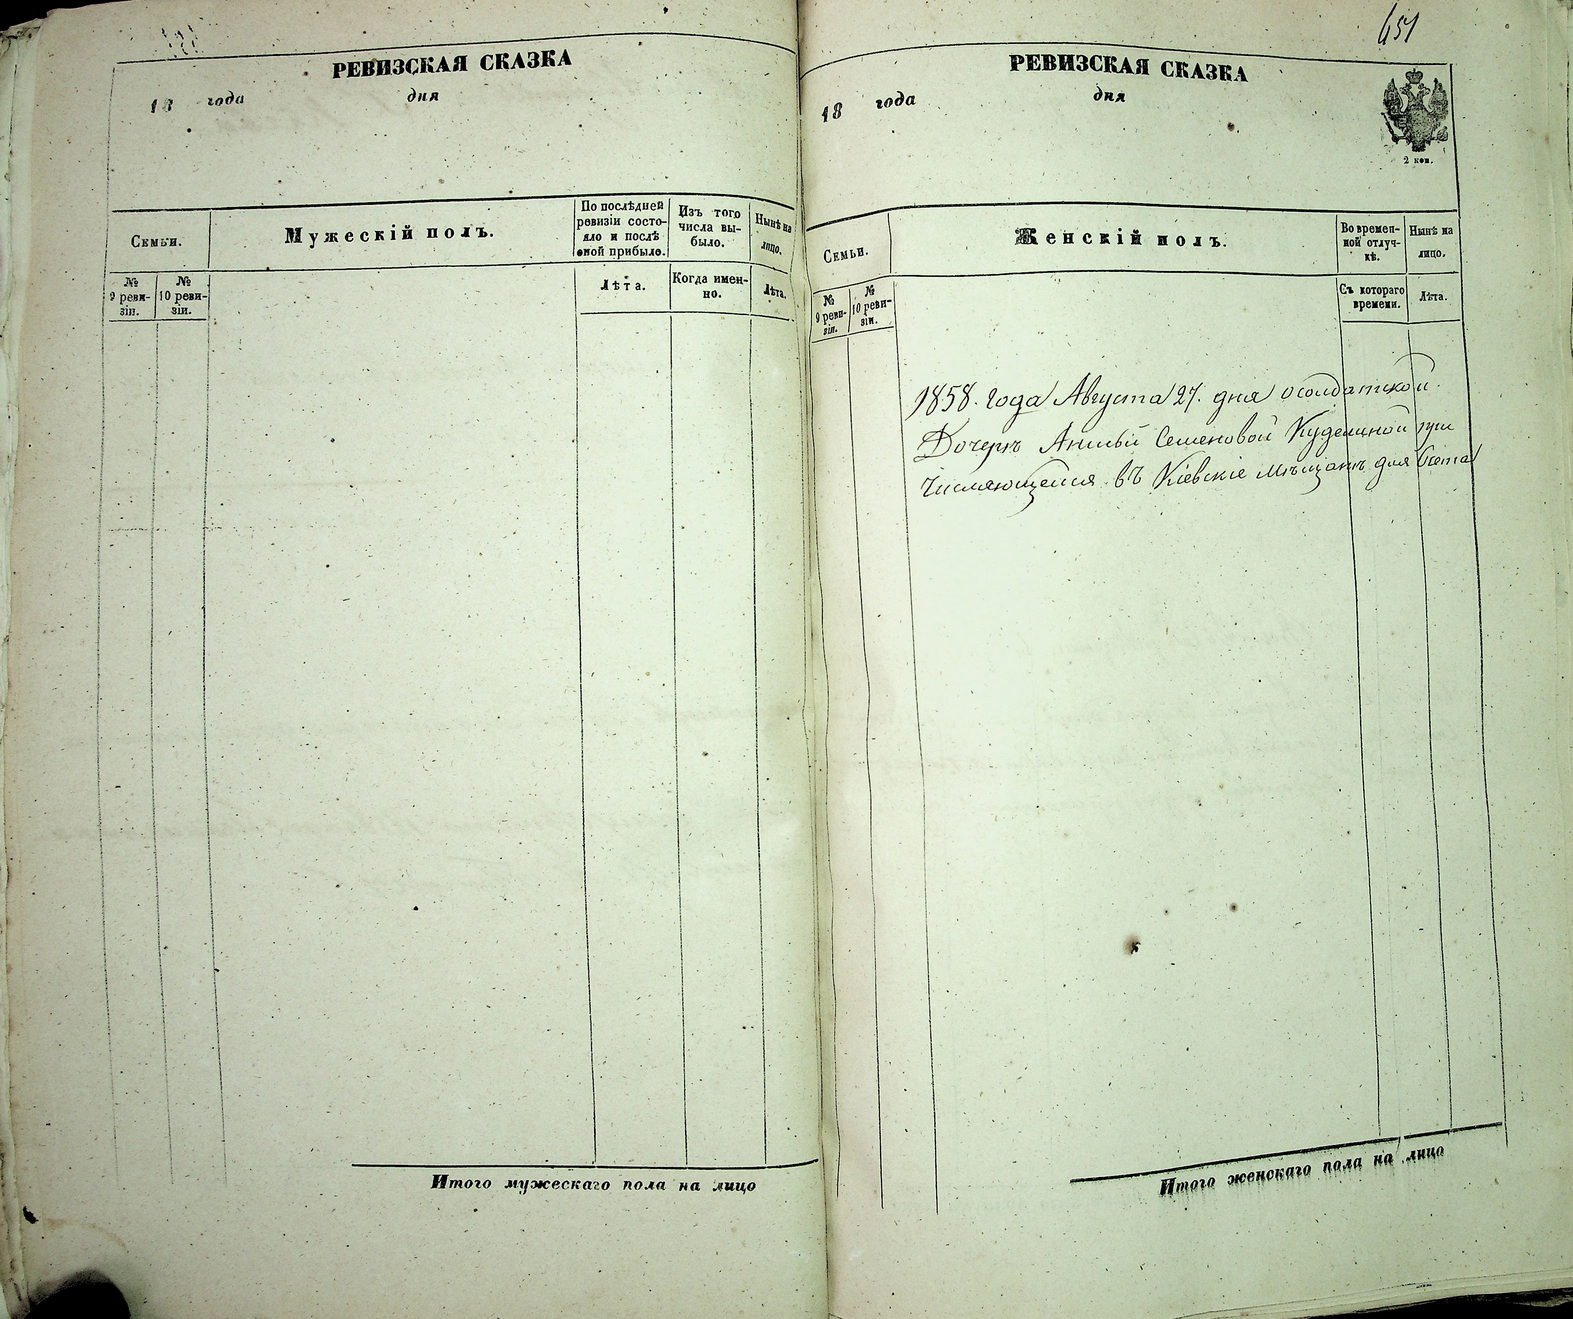 651
РЕВИЗСКАЯ СКАЗКА
18 года дня
Семьи.
Мужескій полъ.
По послѣдней
ревизіи состо-
яло и послѣ
оной прибыло.
Изъ того
числа вы-
было.
Нынѣ на
лицо.
№
9 реви-
зіи.
№
10 реви-
зіи.
Лѣта.
Когда имен-
но.
Лѣта.
Итого мужескаго пола на лицо
РЕВИЗСКАЯ СКАЗКА
18 года дня
2 коп.
Семьи.
Женскій полъ.
Во времен-
ной отлуч-
кѣ.
Нынѣ на
лицо.
№
9 реви-
зіи.
№
10 реви-
зіи.
Съ котораго
времени.
Лѣта.
1858. года Августа 27. дня о солдатской
Дочерѣ Семеновой
числяющейся въ Кіевскіе мѣщанъ для счета
Итого женскаго пола на лицо